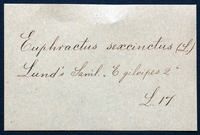 Euphractus sexcinctus (L.)
Lund's Saml. "E gilvipes 2"
L 17